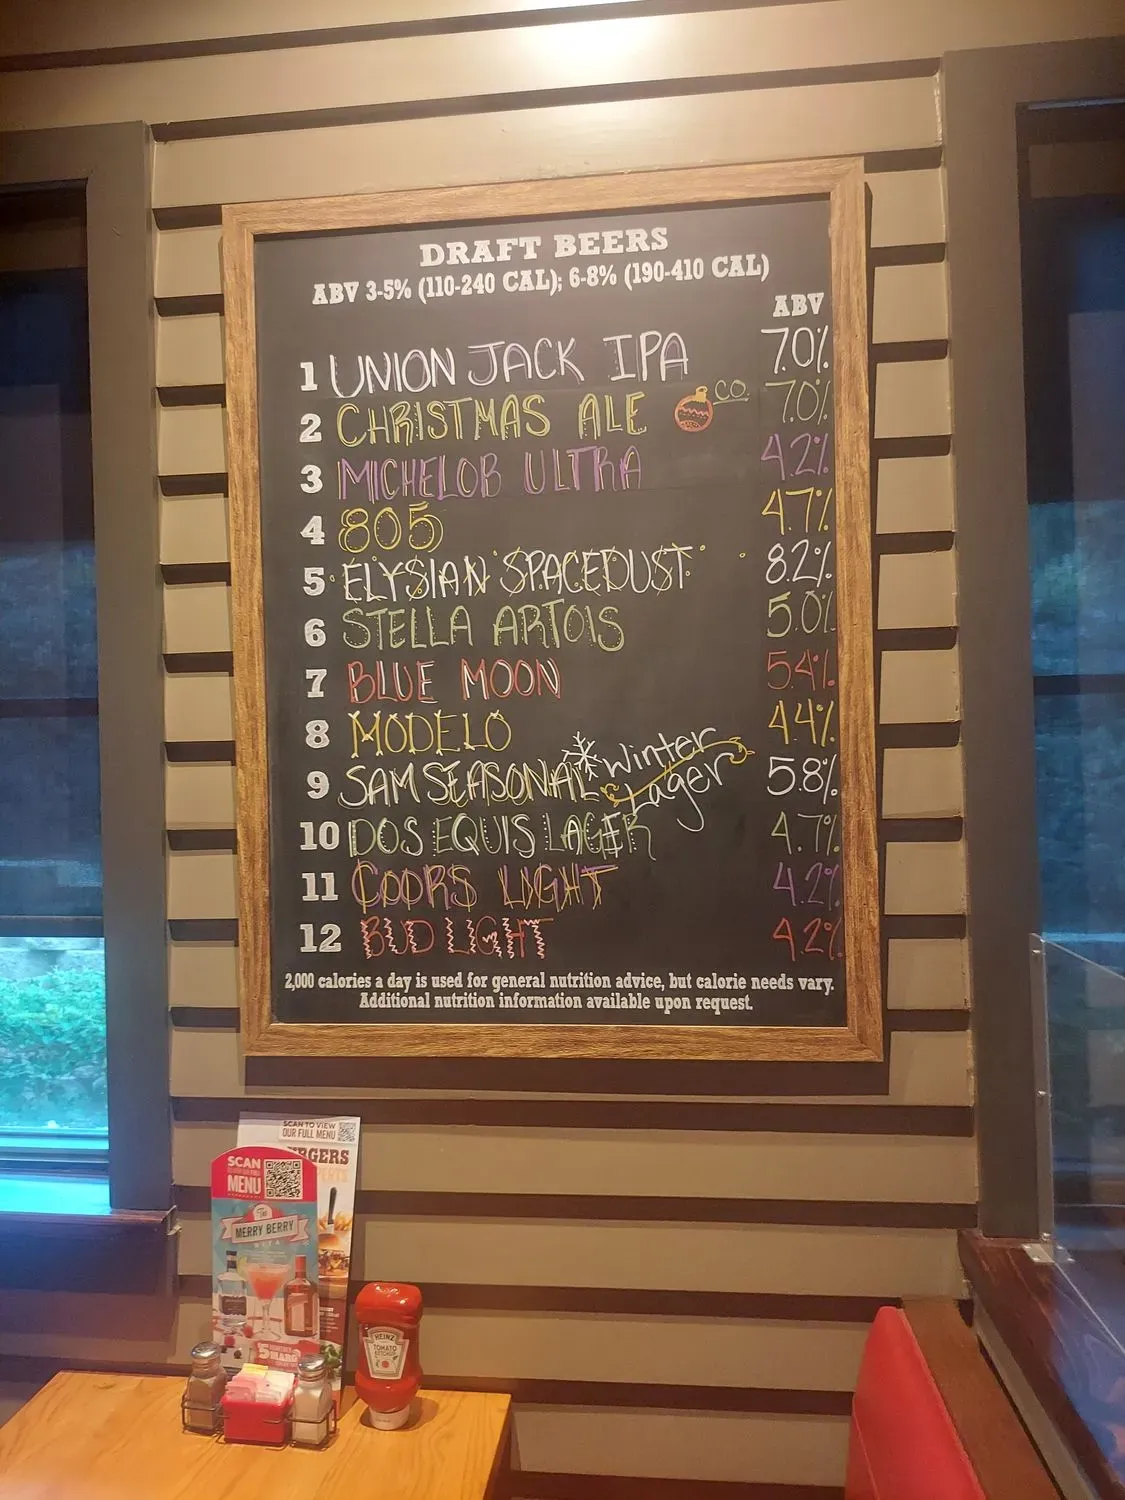 DRAFT BEERS
ABV 3-5% (110-240 CAL); 6-8% (190-410 CAL)
ABV
1 UNION JACK IPA 7.0%
2 CHRISTMAS ALE CO. 7.0%
3 MICHELOB ULTRA 4.2%
4 805 4.7%
5 ELYSIAN SPACEDUST 8.2%
6 STELLA ARTOIS 5.0%
7 BLUE MOON 5.4%
8 MODELO 4.4%
9 SAM SEASONAL Winter Lager 5.8%
10 DOS EQUIS LAGER 4.7%
11 COORS LIGHT 4.2%
12 BUD LIGHT 4.2%
2,000 calories a day is used for general nutrition advice, but calorie needs vary.
Additional nutrition information available upon request.
SCAN TO VIEW
OUR FULL MENU
SCAN
MENU
The
MERRY BERRY
HEINZ
TOMATO
KETCHUP